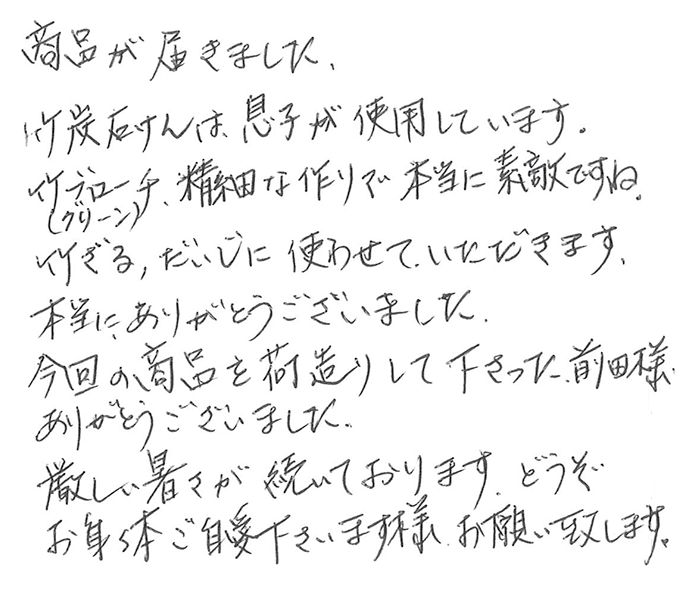 商品が届きました、
竹炭石けんは、息子が使用しています。
竹ブローチ、精細な作りで本当に素敵ですね。
(グリーン)
竹ざる、だいじに使わせていただきます、
本当に、ありがとうございました。
今回の商品を荷造りして下さった、前田様
ありがとうございました。
厳しい暑さが続いております、どうぞ
お身体ご自愛下さいます様、お願い致します。